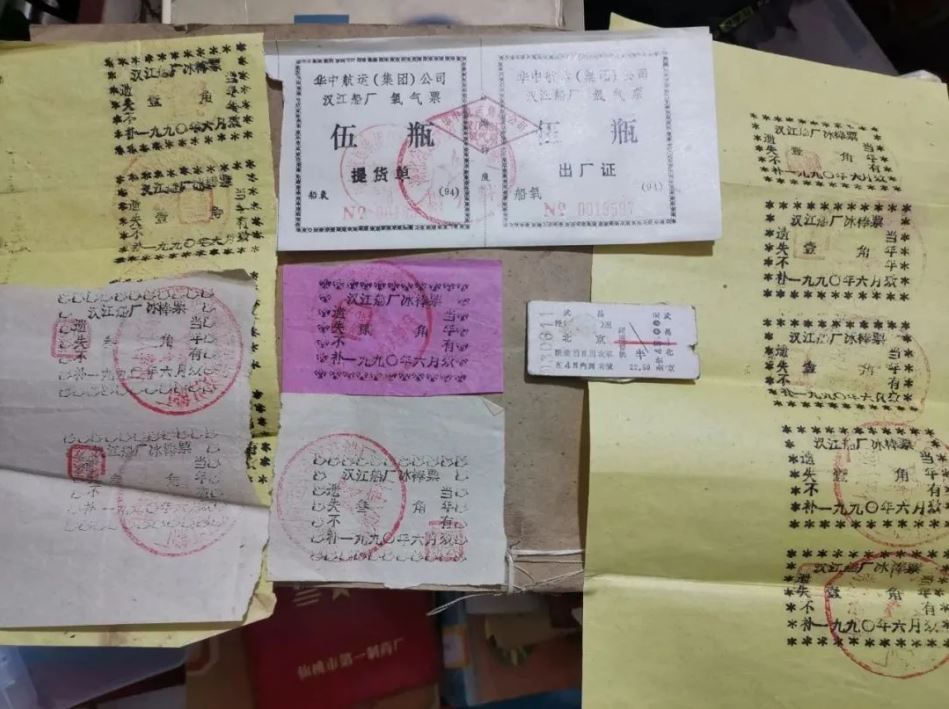 汉江船厂冰棒票
遗 当
失 壹 角 年
不 有
补一九九〇年六月效
遗 当
失 壹 角 年
不
补一九九〇年六
汉江船厂冰棒票
遗 当
失 角 年
不 有
补一九九〇年六月效
汉江船厂冰棒票
遗 当
失 叁 角 年
不 有
补一九九〇年六月
华中航运(集团)公司
汉江船厂 氧气票
伍 瓶
提货单
船氧 (94)
华中航运(集团)公司
汉江船厂 氧气票
伍 瓶
出厂证
船氧 (94)
№ 0019507
汉江船厂冰棒票
遗 当
失 贰 角 年
不 有
补一九九〇年六月效
汉江船厂冰棒票
遗 当
失 叁 角 年
不 有
补一九九〇年六月效
武昌
北京
半
22.50
汉江船厂冰棒票
遗 当
失 壹 角 年
不 有
补一九九〇年六月效
汉江船厂冰棒票
遗 当
失 壹 角 年
不 有
补一九九〇年六月效
汉江船厂冰棒票
遗 当
失 壹 角 年
不 有
补一九九〇年六月效
汉江船厂冰棒票
遗 当
失 壹 角 年
不 有
补一九九〇年六月效
汉江船厂冰棒票
遗 当
失 壹 角 年
不 有
补一九九〇年六月效
市第一制药厂